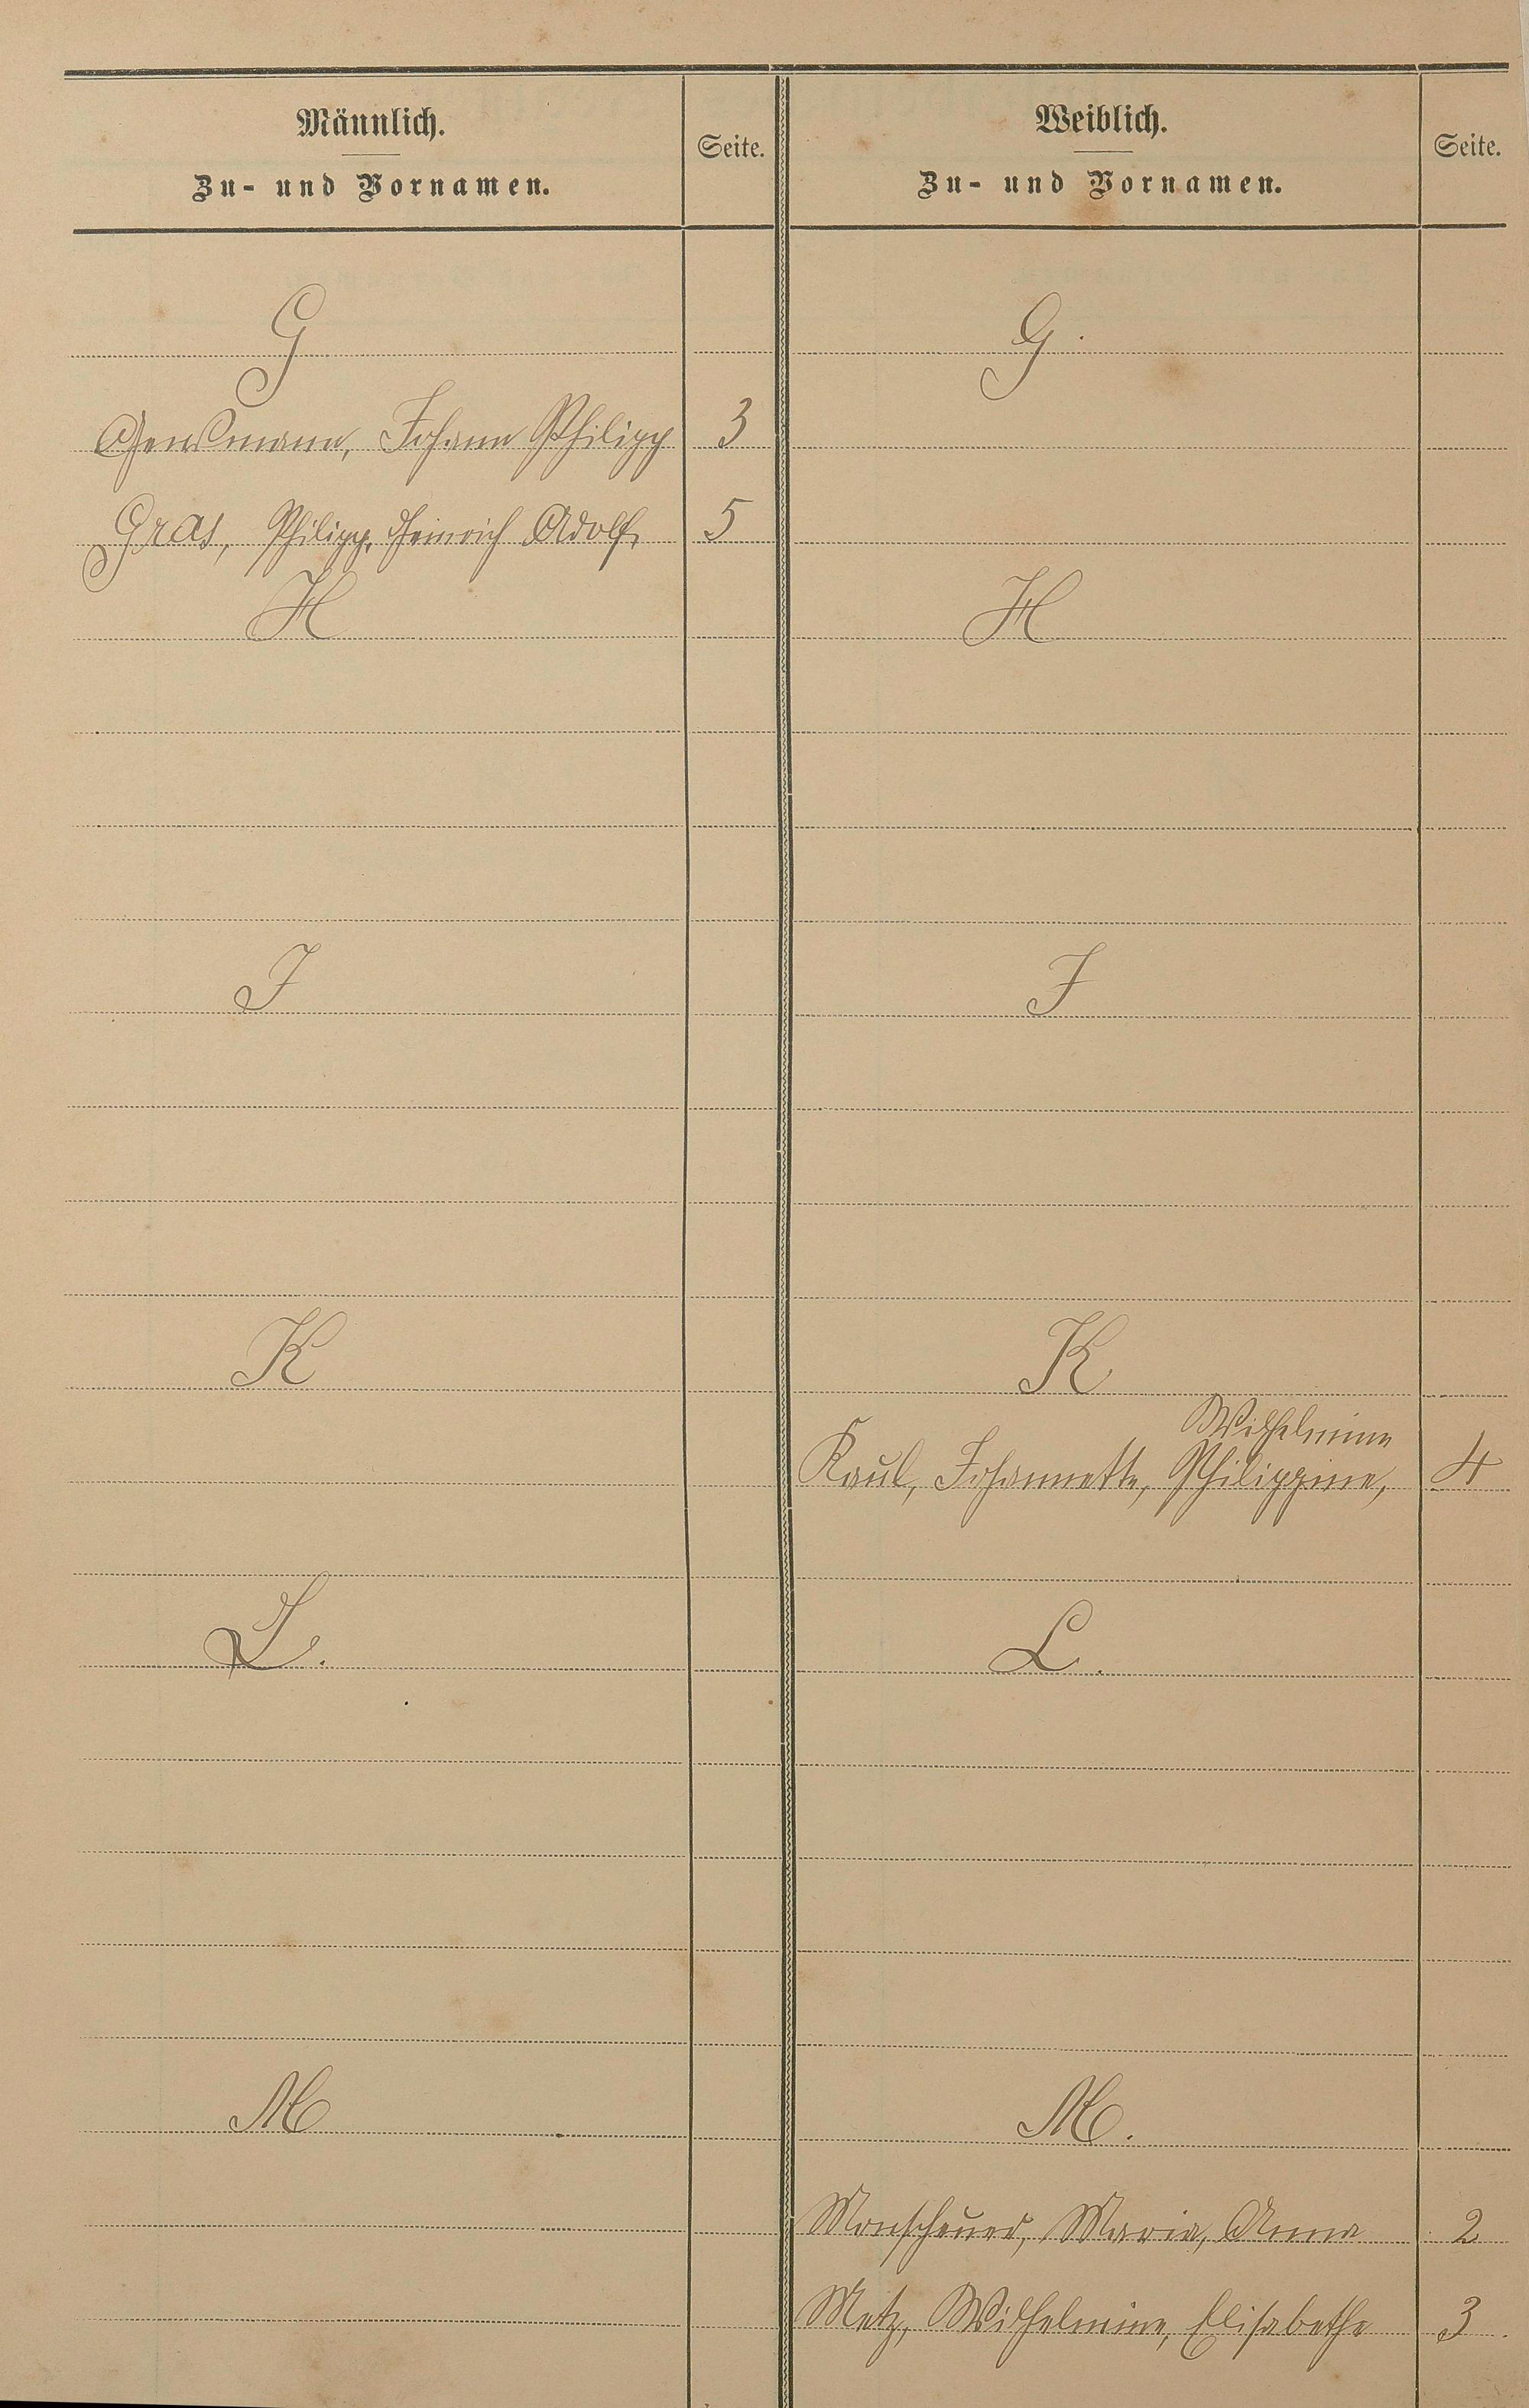 Männlich.
Zu- und Vornamen.
Seite.
Weiblich.
Zu- und Vornamen.
Seite.
G
G.
Genßmann, Johann Philipp 3
Gras, Philipp, Heinrich Adolf, 5
H
H
J
J
K
K
Wilhelmine
Kaul, Johannette, Philippine, 4
L.
L.
M
M.
Monscheuer, Maria, Anna 2
Metz, Wilhelmine, Elisabethe 3.